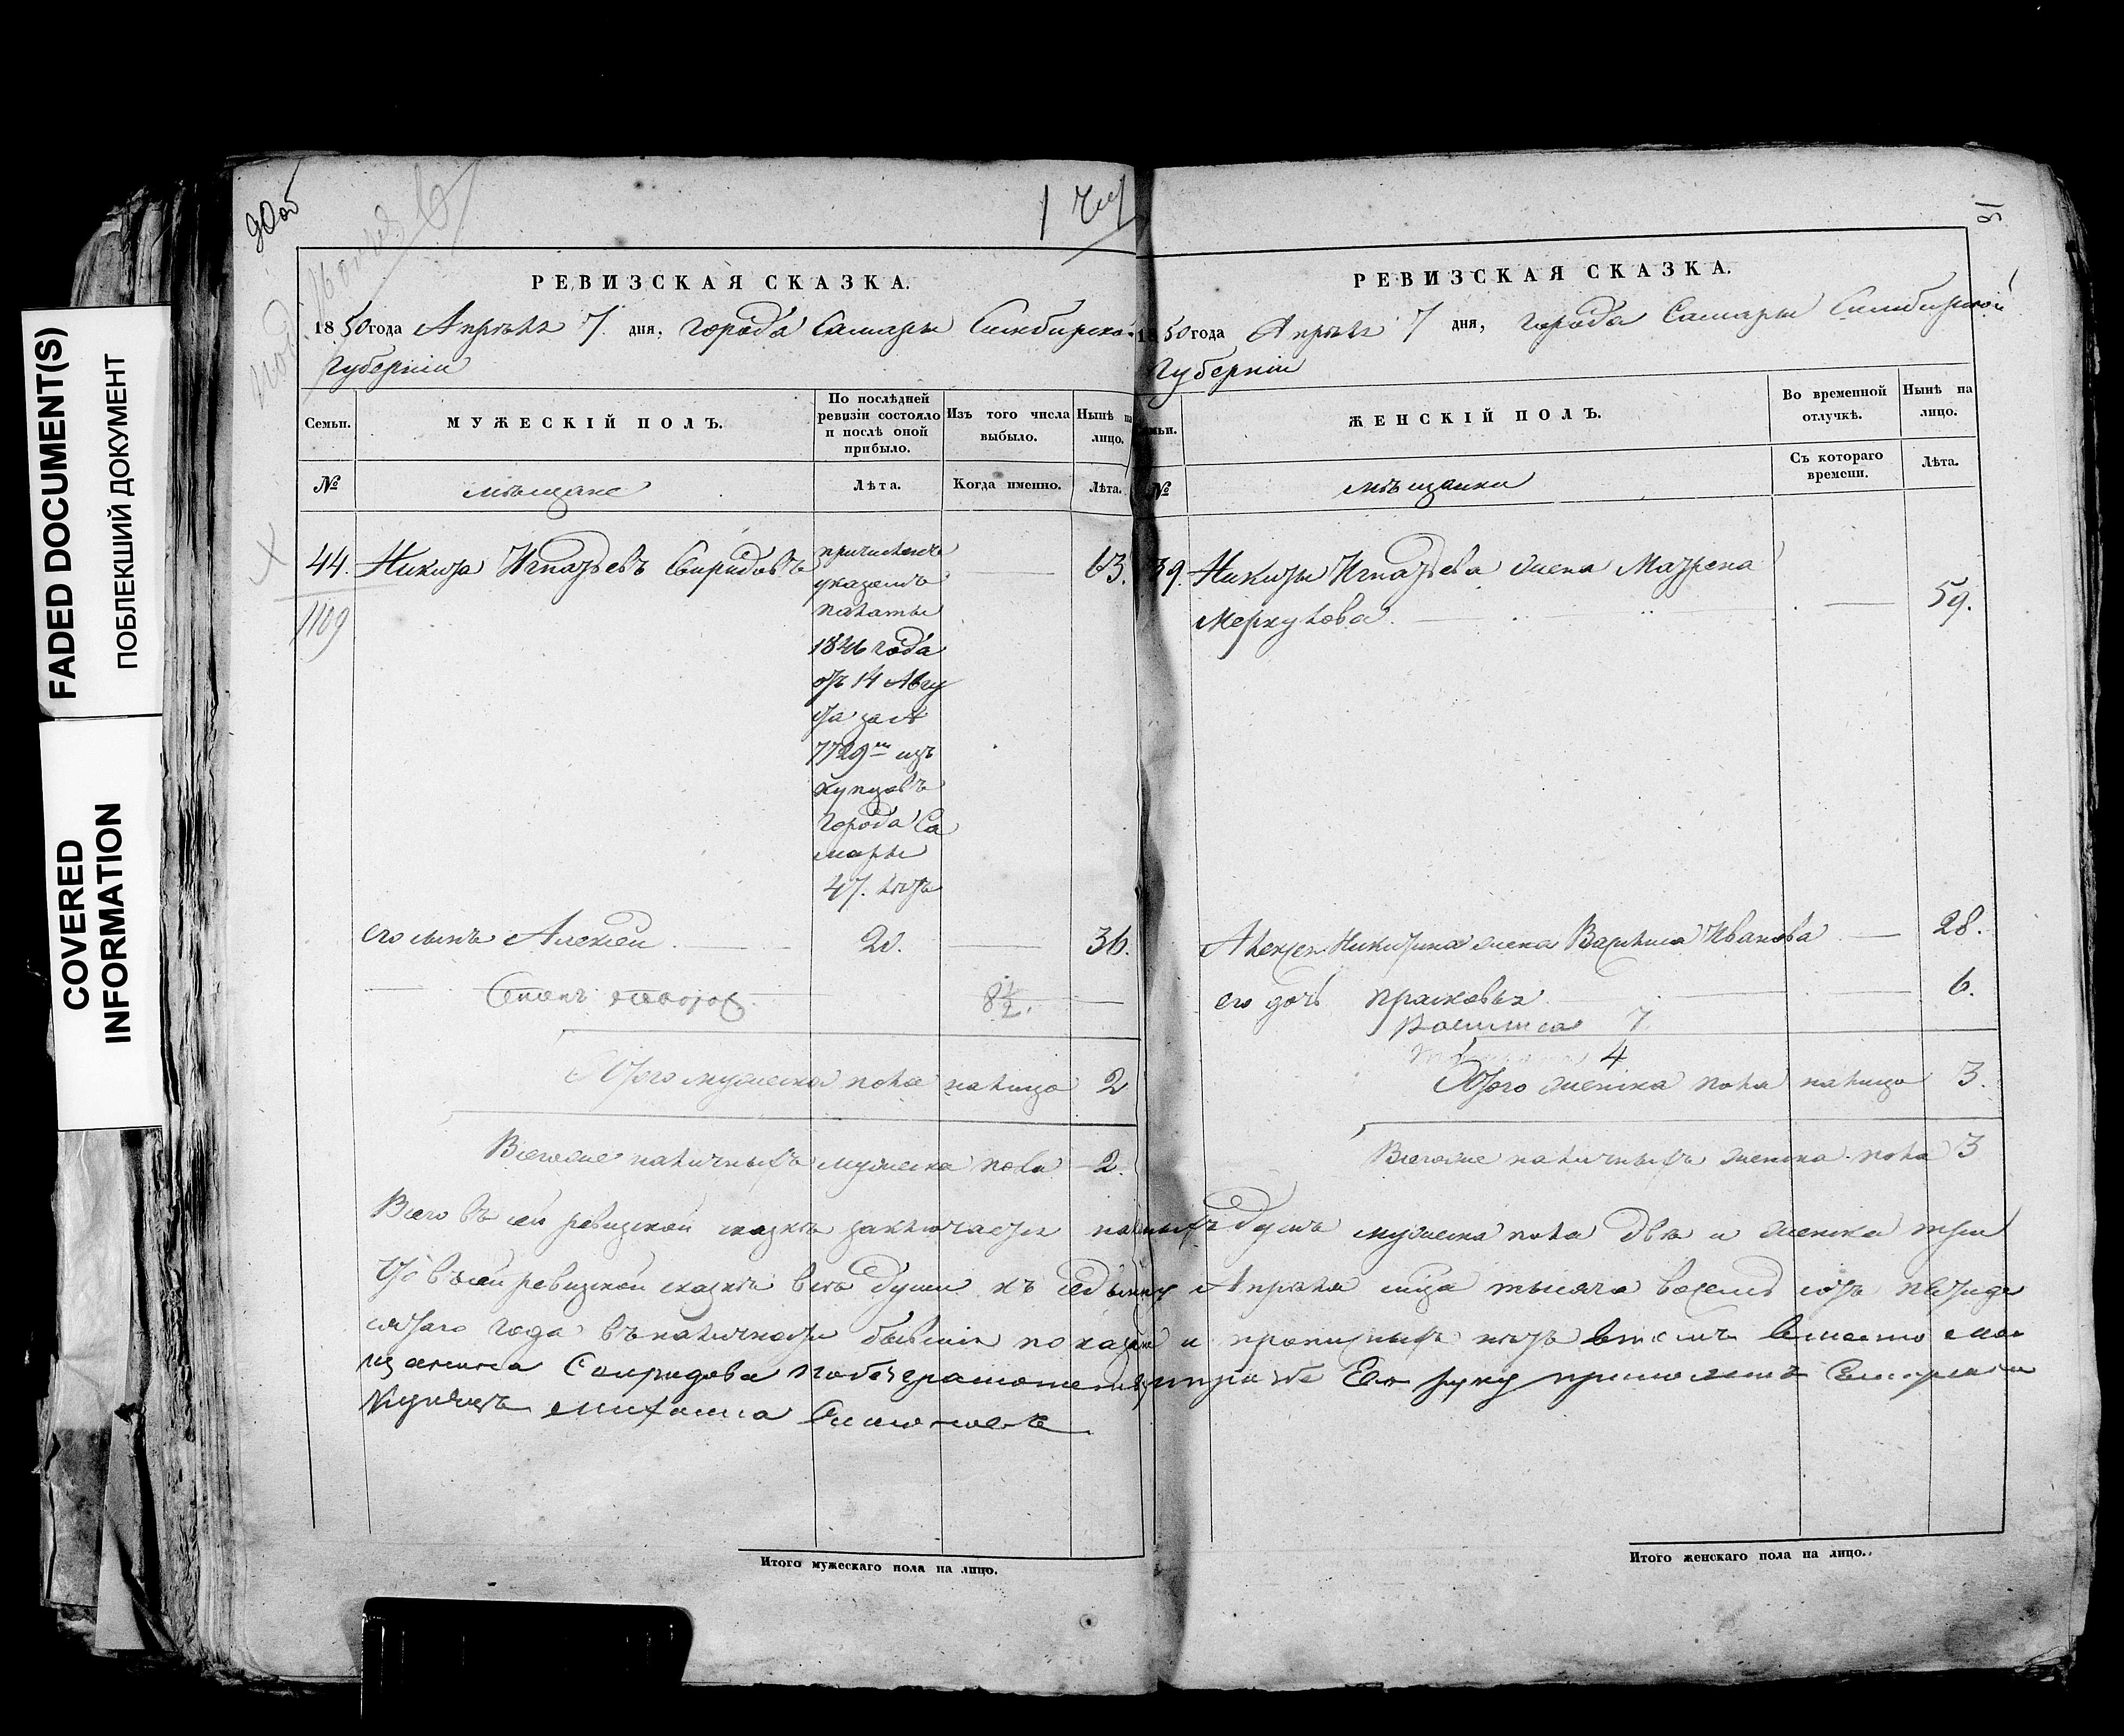 FADED DOCUMENT(S)
ПОБЛЕКШИЙ ДОКУМЕНТ
COVERED
INFORMATION
90об
РЕВИЗСКАЯ СКАЗКА.
1850 года Апрѣля 7. дня, города Самары Симбирской
Губерніи
Семьи.
МУЖЕСКІЙ ПОЛЪ.
По послѣдней
ревизіи состояло
и послѣ оной
прибыло.
Изъ того числа
выбыло.
Нынѣ на
лицо.
№
мѣщане
Лѣта.
Когда именно.
Лѣта.
44. Никита Игнатьевъ Свиридовъ
1109
причисленъ
указомъ
палаты
1846 года
отъ 14 Авгу
ста за №
7729м изъ
купцовъ
города Са
мары
47. лѣтъ
63.
его сынъ Алексей
20.
36.
8½.
Итого мужеска пола налицо 2
Всего же наличныхъ мужеска пола 2.
91
РЕВИЗСКАЯ СКАЗКА.
1850 года Апрѣля 7 дня, города Самары Симбирской
Губерніи
Семьи.
ЖЕНСКІЙ ПОЛЪ.
Во временной
отлучкѣ.
Нынѣ на
лицо.
№
мѣщанки
Съ котораго
времени.
Лѣта.
39. Никиты Игнатьева жена Матрена
Меркулова.
59.
Алексея Никитина жена Варвара Иванова 28.
его дочь Прасковья 6.
7
4
Итого женска пола налицо 3.
Всего же наличныхъ женска пола 3
Всего въ сей ревизской сказкѣ заключается наличныхъ душъ мужеска пола двѣ и женска три
Что въ сей ревизской сказкѣ всѣ души къ седьмому Апрѣля мца тысяча восемь сотъ пятиде
сятаго года въ наличности бывшія показаны и прописныхъ нѣтъ въ томъ вместо ме
щанина Свиридова по безграмотству и прозбе Его руку приложилъ Самарской
Купецъ Михаила
Итого мужескаго пола на лицо.
Итого женскаго пола на лицо.